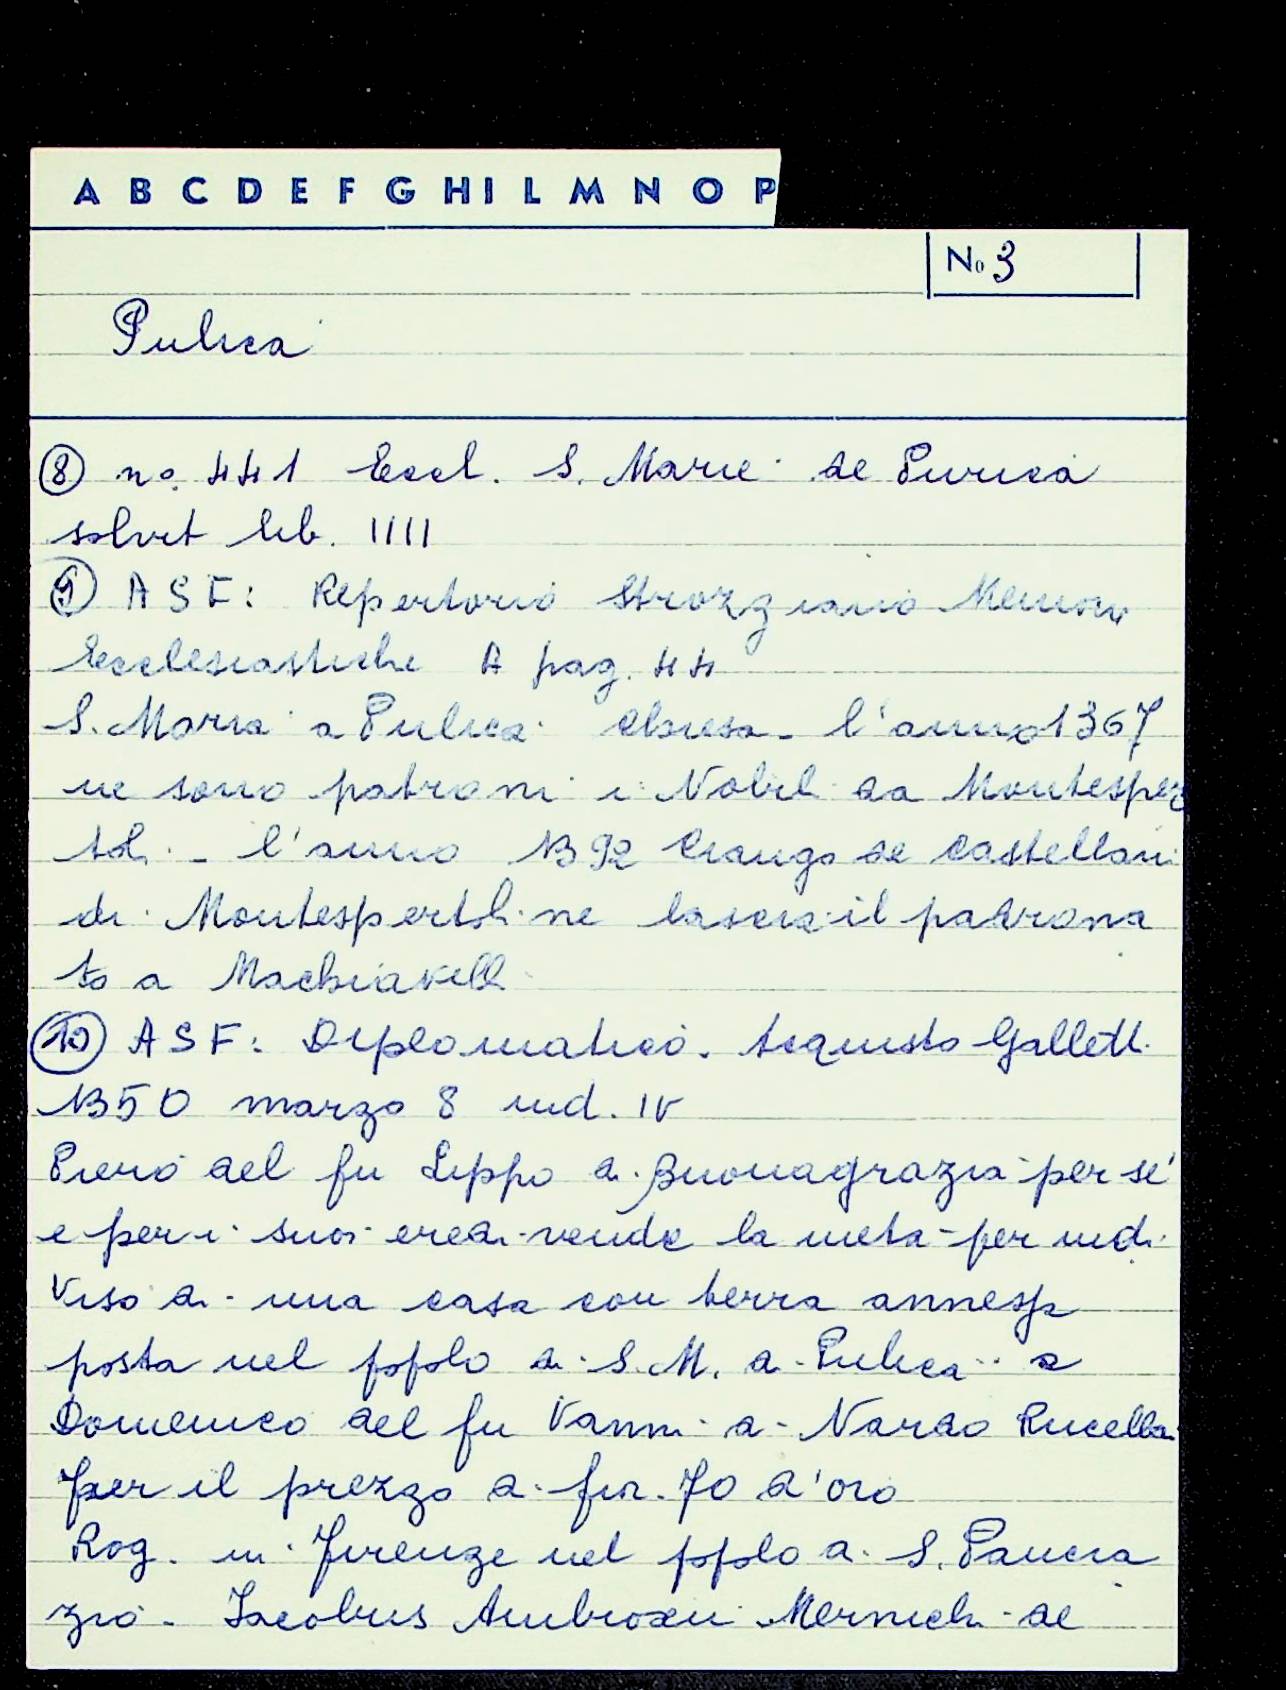 A B C D E F G H I L M N O P
No 3
Pulica
8 no. 441 Eccl. S. Marie de Purica
solvit lib. IIII
9 ASF: Repertorio Strozziano Memorie
Ecclesiastiche A pag. 44
S. Maria a Pulica Chiesa - l'anno 1367
ne sono patroni i Nobili da Montesper
toli - l'anno 1392 de Castellani
di Montespertoli ne lascia il patrona
to a Machiavelli
10 ASF: Diplomatico. Acquisto Galletti
1350 marzo 8 ind. IV
Piero del fu Lippo di Buonagrazia per sé
e per i suoi eredi vende la metà per indi
viso di una casa con terra annessa
posta nel popolo di S. M. a Pulica a
Domenico del fu Vanni di Nardo Rucellai
per il prezzo di fior. 70 d'oro
Rog. in Firenze nel popolo di S. Pancra
zio - Iacobus Ambroxii de